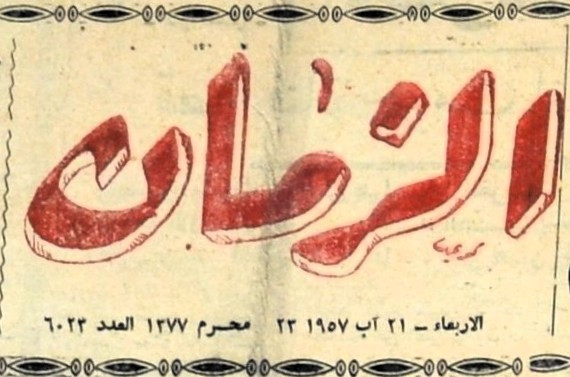 الزمان
الاربعاء - ٢١ آب ١٩٥٧ ٢٣ محرم ١٣٧٧ العدد ٦٠٢٣